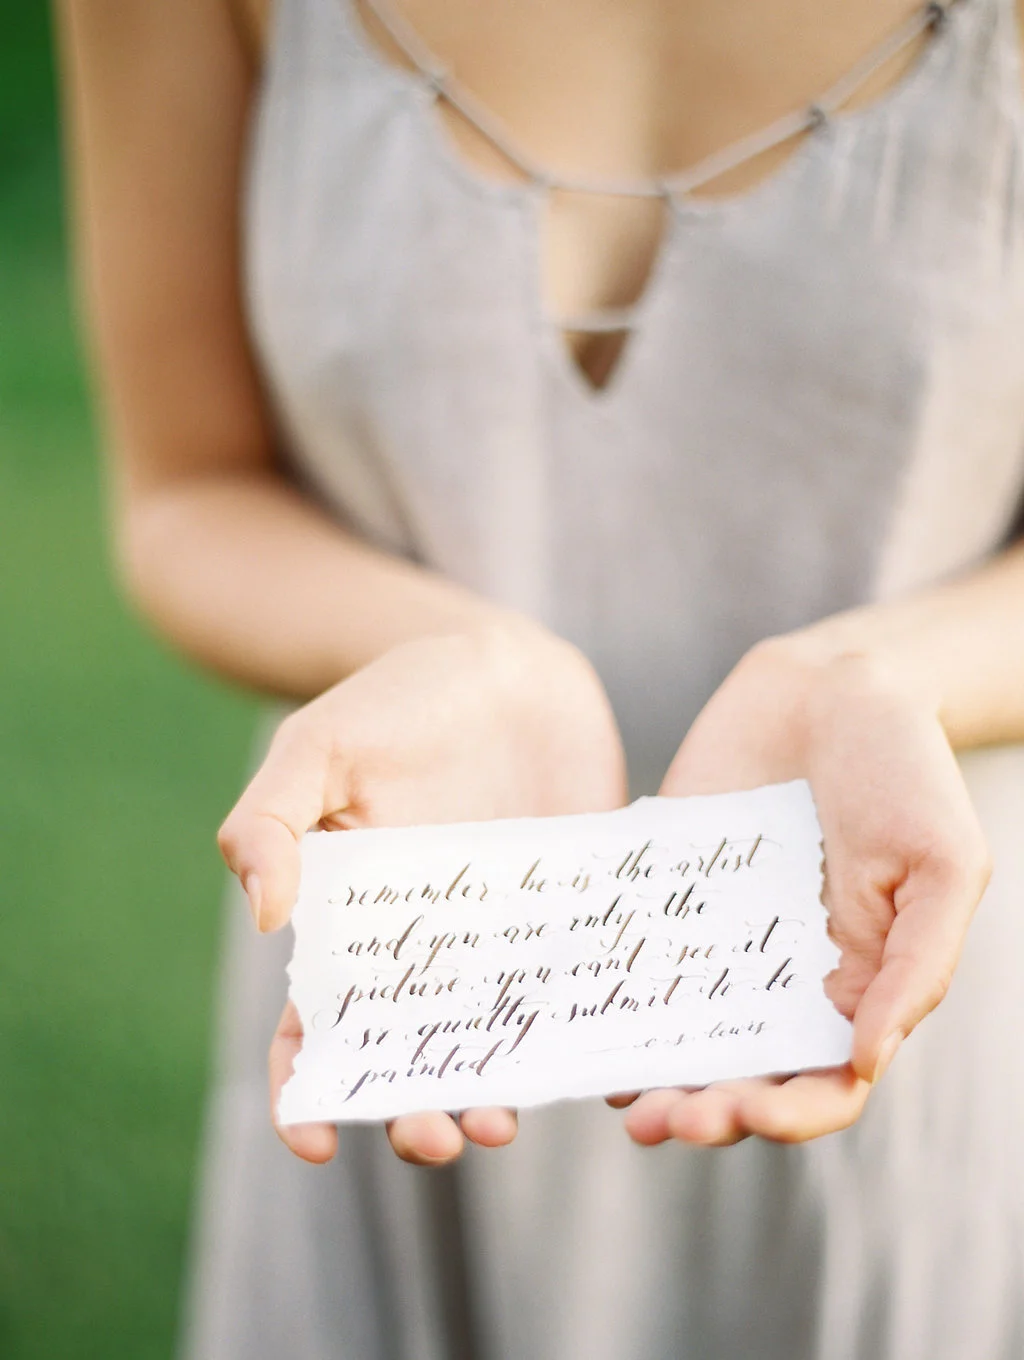 remember he is the artist
and you are only the
picture you can't see it
so quietly submit to be
painted.
— c.s. lewis